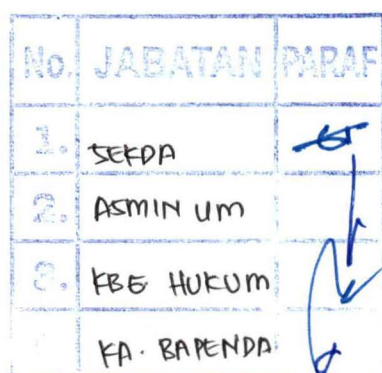 No. JABATAN PARAF
1. SEKDA
2. ASMIN UM
3. KBG HUKUM
KA. BAPENDA